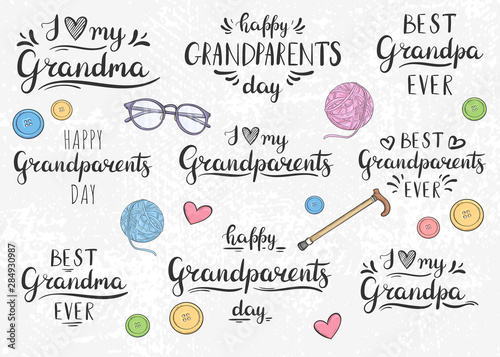 I my
Grandma
happy
GRANDPARENTS
day
BEST
Grandpa
EVER
HAPPY
Grandparents
DAY
I my
Grandparents
BEST
Grandparents
EVER
BEST
Grandma
EVER
happy
Grandparents
day
I my
Grandpa
Adobe Stock | #284930987